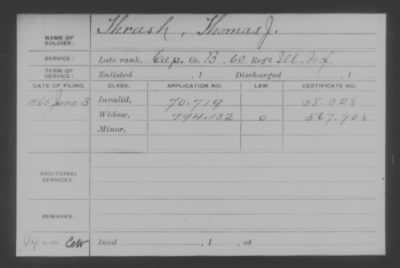 NAME OF SOLDIER: Thrash, Thomas J.
SERVICE: Late rank, Cap. Co. B. 60 Reg't Ill. Inf
TERM OF SERVICE: Enlisted , 1 Discharged , 1
DATE OF FILING. CLASS. APPLICATION NO. LAW. CERTIFICATE NO.
1865 June 3 Invalid, 70.719 58.328
Widow, 794.132 567.908
Minor,
ADDITIONAL SERVICES:
REMARKS:
Died , 1 , at